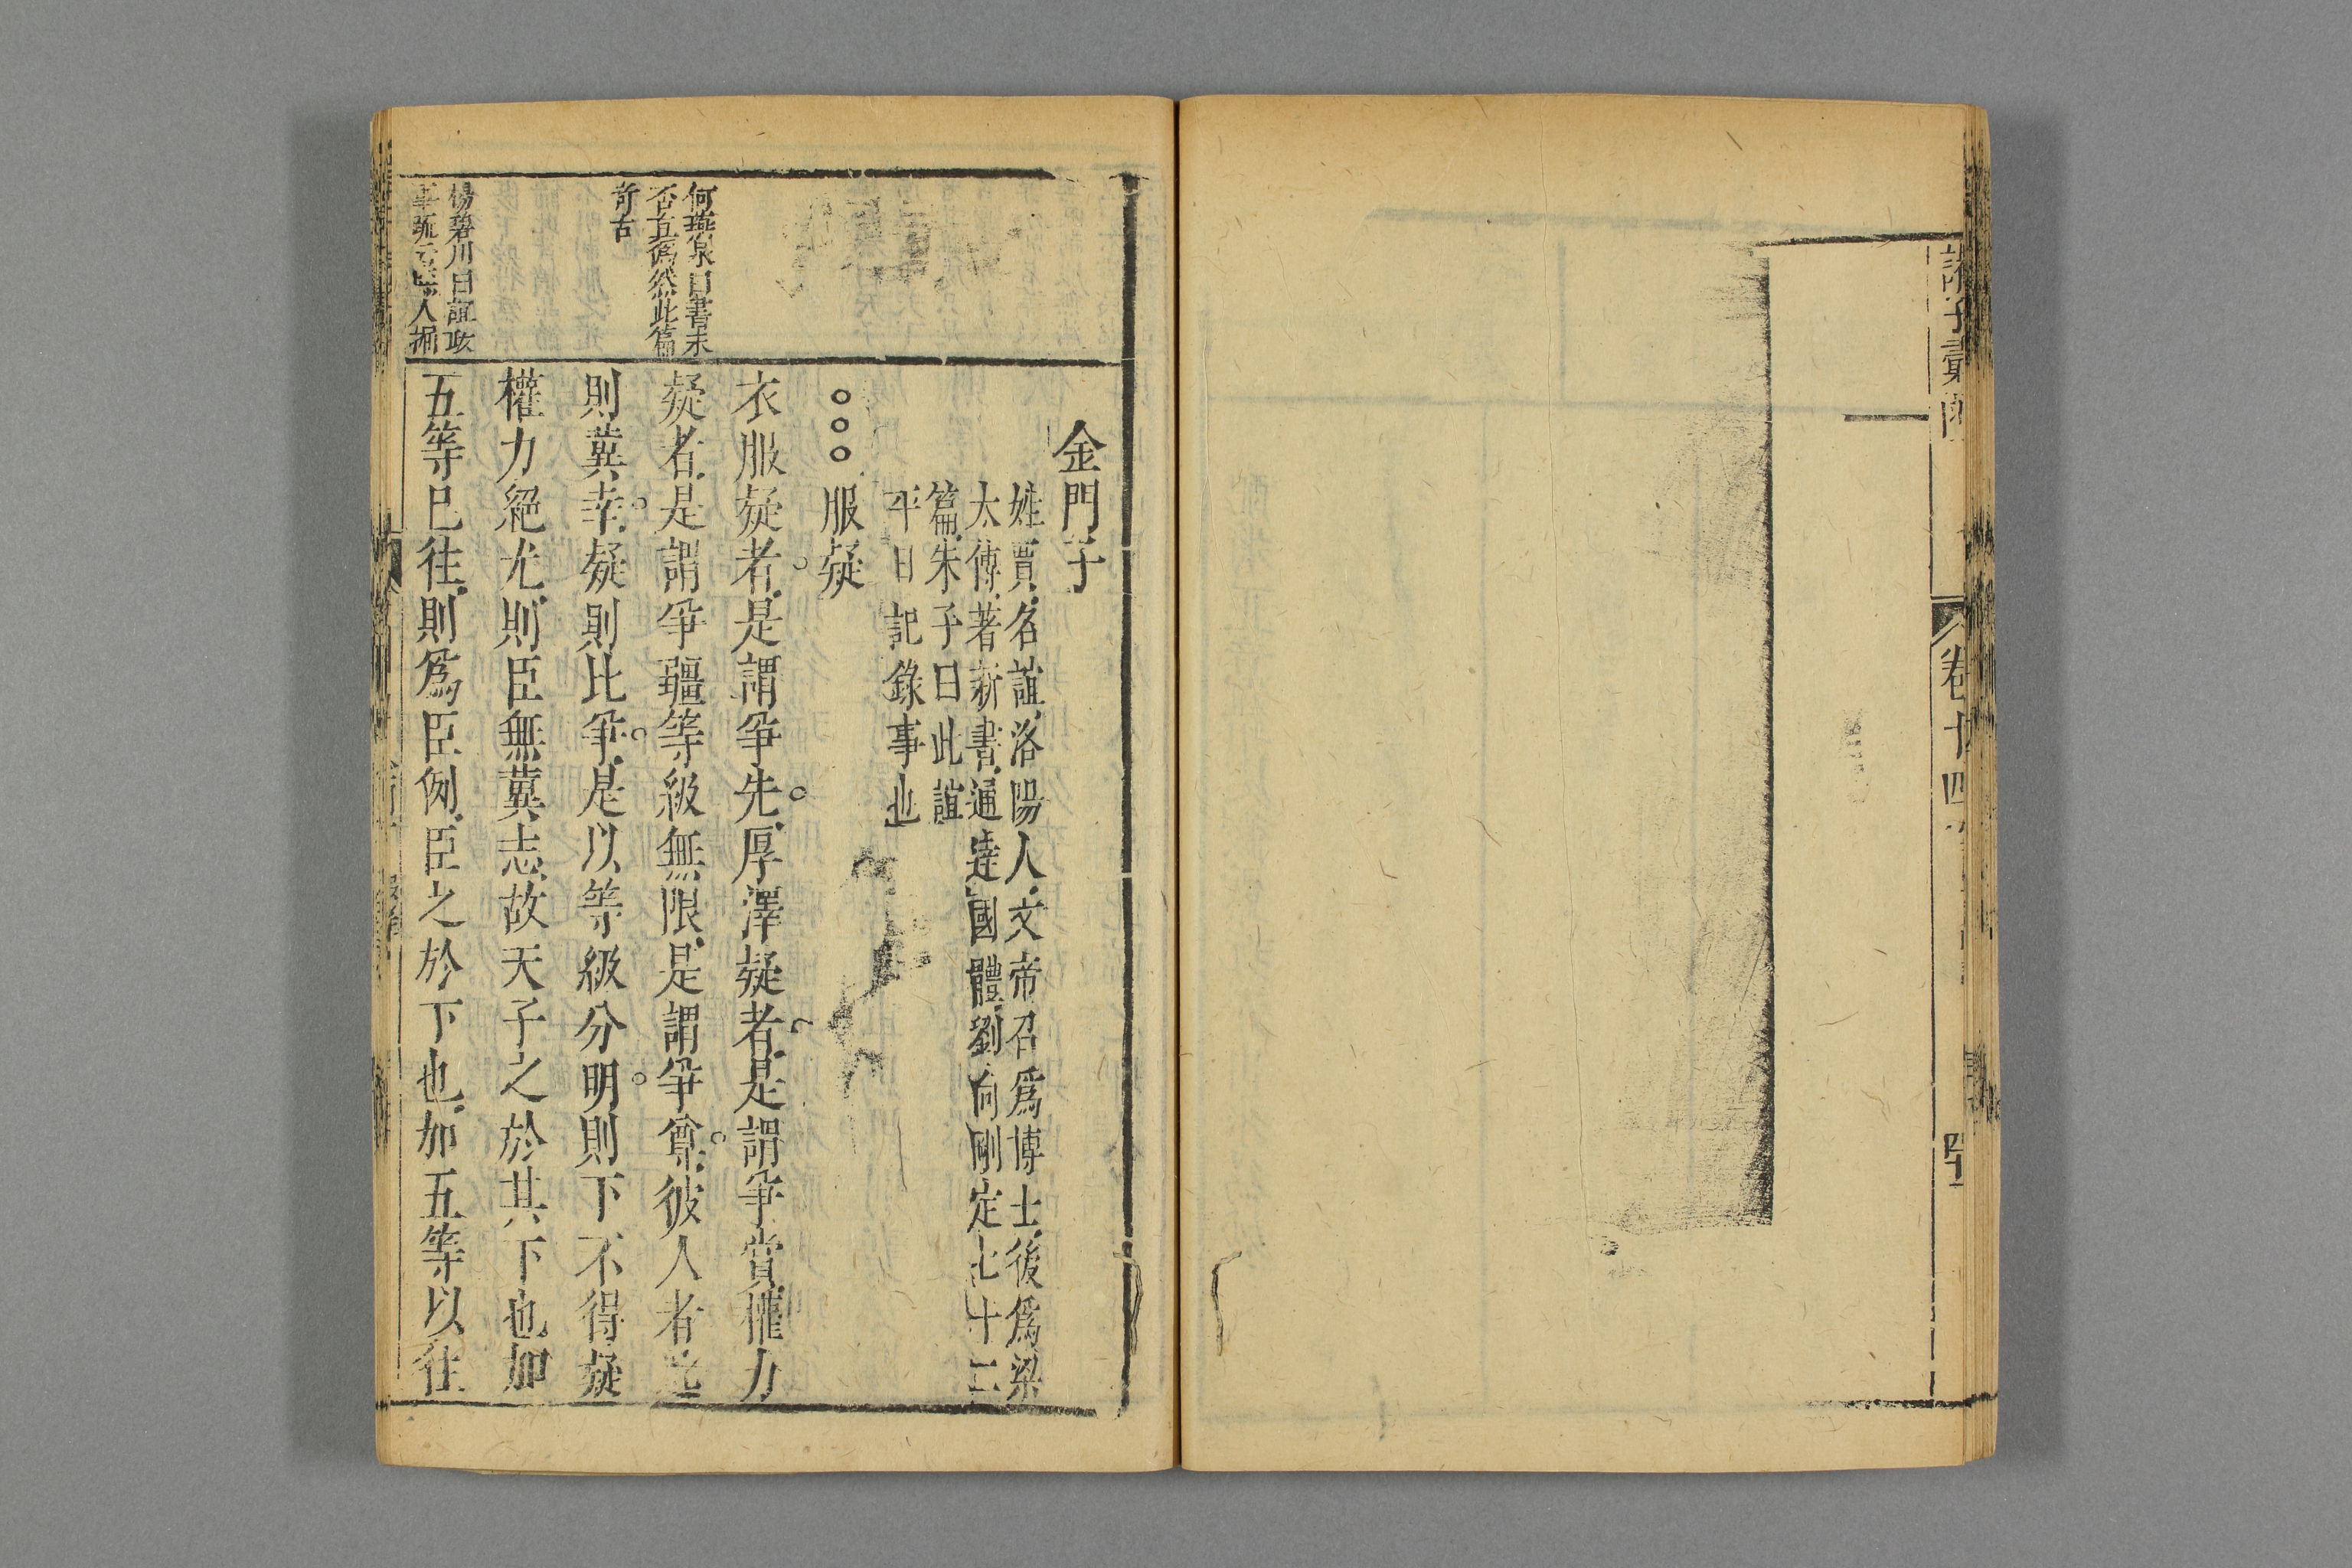 諸子彙函
卷十四
金門子
姓賈名誼洛陽人文帝召爲博士後爲梁
太傅著新書通達國體劉向刪定七十二
篇朱子曰此誼
平日記錄事也
服疑
衣服疑者是謂爭先厚澤疑者是謂爭賞權力
疑者是謂爭彊等級無限是謂爭尊彼人者近
則冀幸疑則比爭是以等級分明則下不得疑
權力絕尤則臣無冀志故天子之於其下也加
五等已往則爲臣例臣之於下也加五等以往
何燕泉曰書未
否直僞然此篇
奇古
楊碧川曰誼政
事疏云庶人